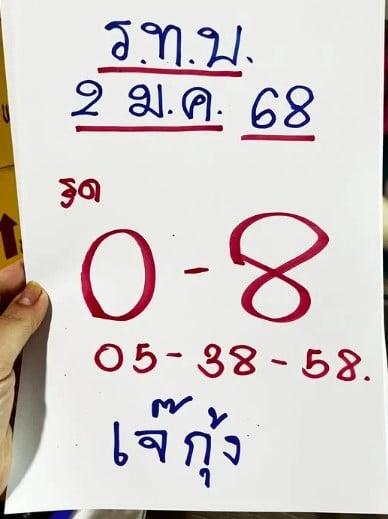 ร.ท.บ.
2 ม.ค. 68
รูด
0 - 8
05 - 38 - 58.
เจ๊กุ้ง